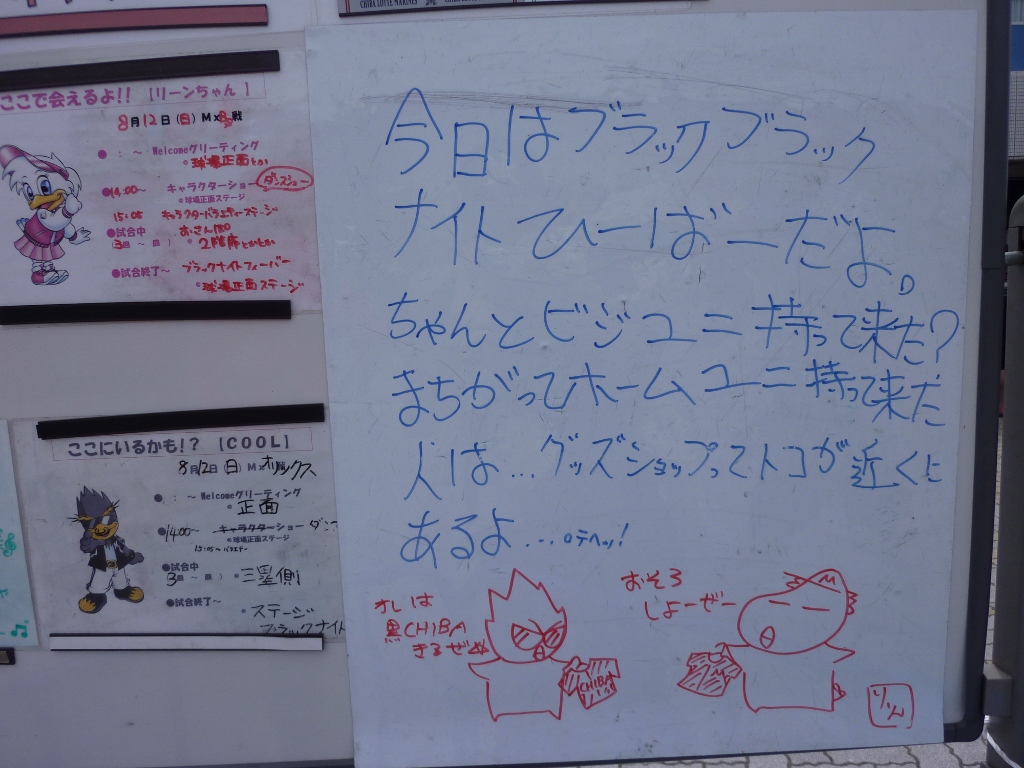 CHIBA LOTTE MARINES
ここで会えるよ!! 【リーンちゃん】
8月12日(日) M×Bs戦
● : ~ Welcomeグリーティング
●球場正面とか
●14:00~ キャラクターショー ダンスショー
●球場正面ステージ
15:05 キャラクターバラエティーステージ
●試合中
3回~ 回)
●2階席とかとか
●試合終了~ ブラックナイトフィーバー
●球場正面ステージ
ここにいるかも!? 【COOL】
8月12日(日) M×オリックス
● : ~ Welcomeグリーティング
●正面
●14:00~ キャラクターショー ダンス
●球場正面ステージ
15:05~バラエティー
●試合中
3回~ 回) ●三塁側
●試合終了~
●ステージ
ブラックナイト
今日はブラックブラック
ナイトひーばーだよ。
ちゃんとビジユニ持って来た?
まちがってホームユニ持って来た
人は...グッズショップってトコが近くに
あるよ...ロテヘッ!
オレは
黒CHIBA
きるぜぃ
CHIBA
おそろ
しよーぜー
りん